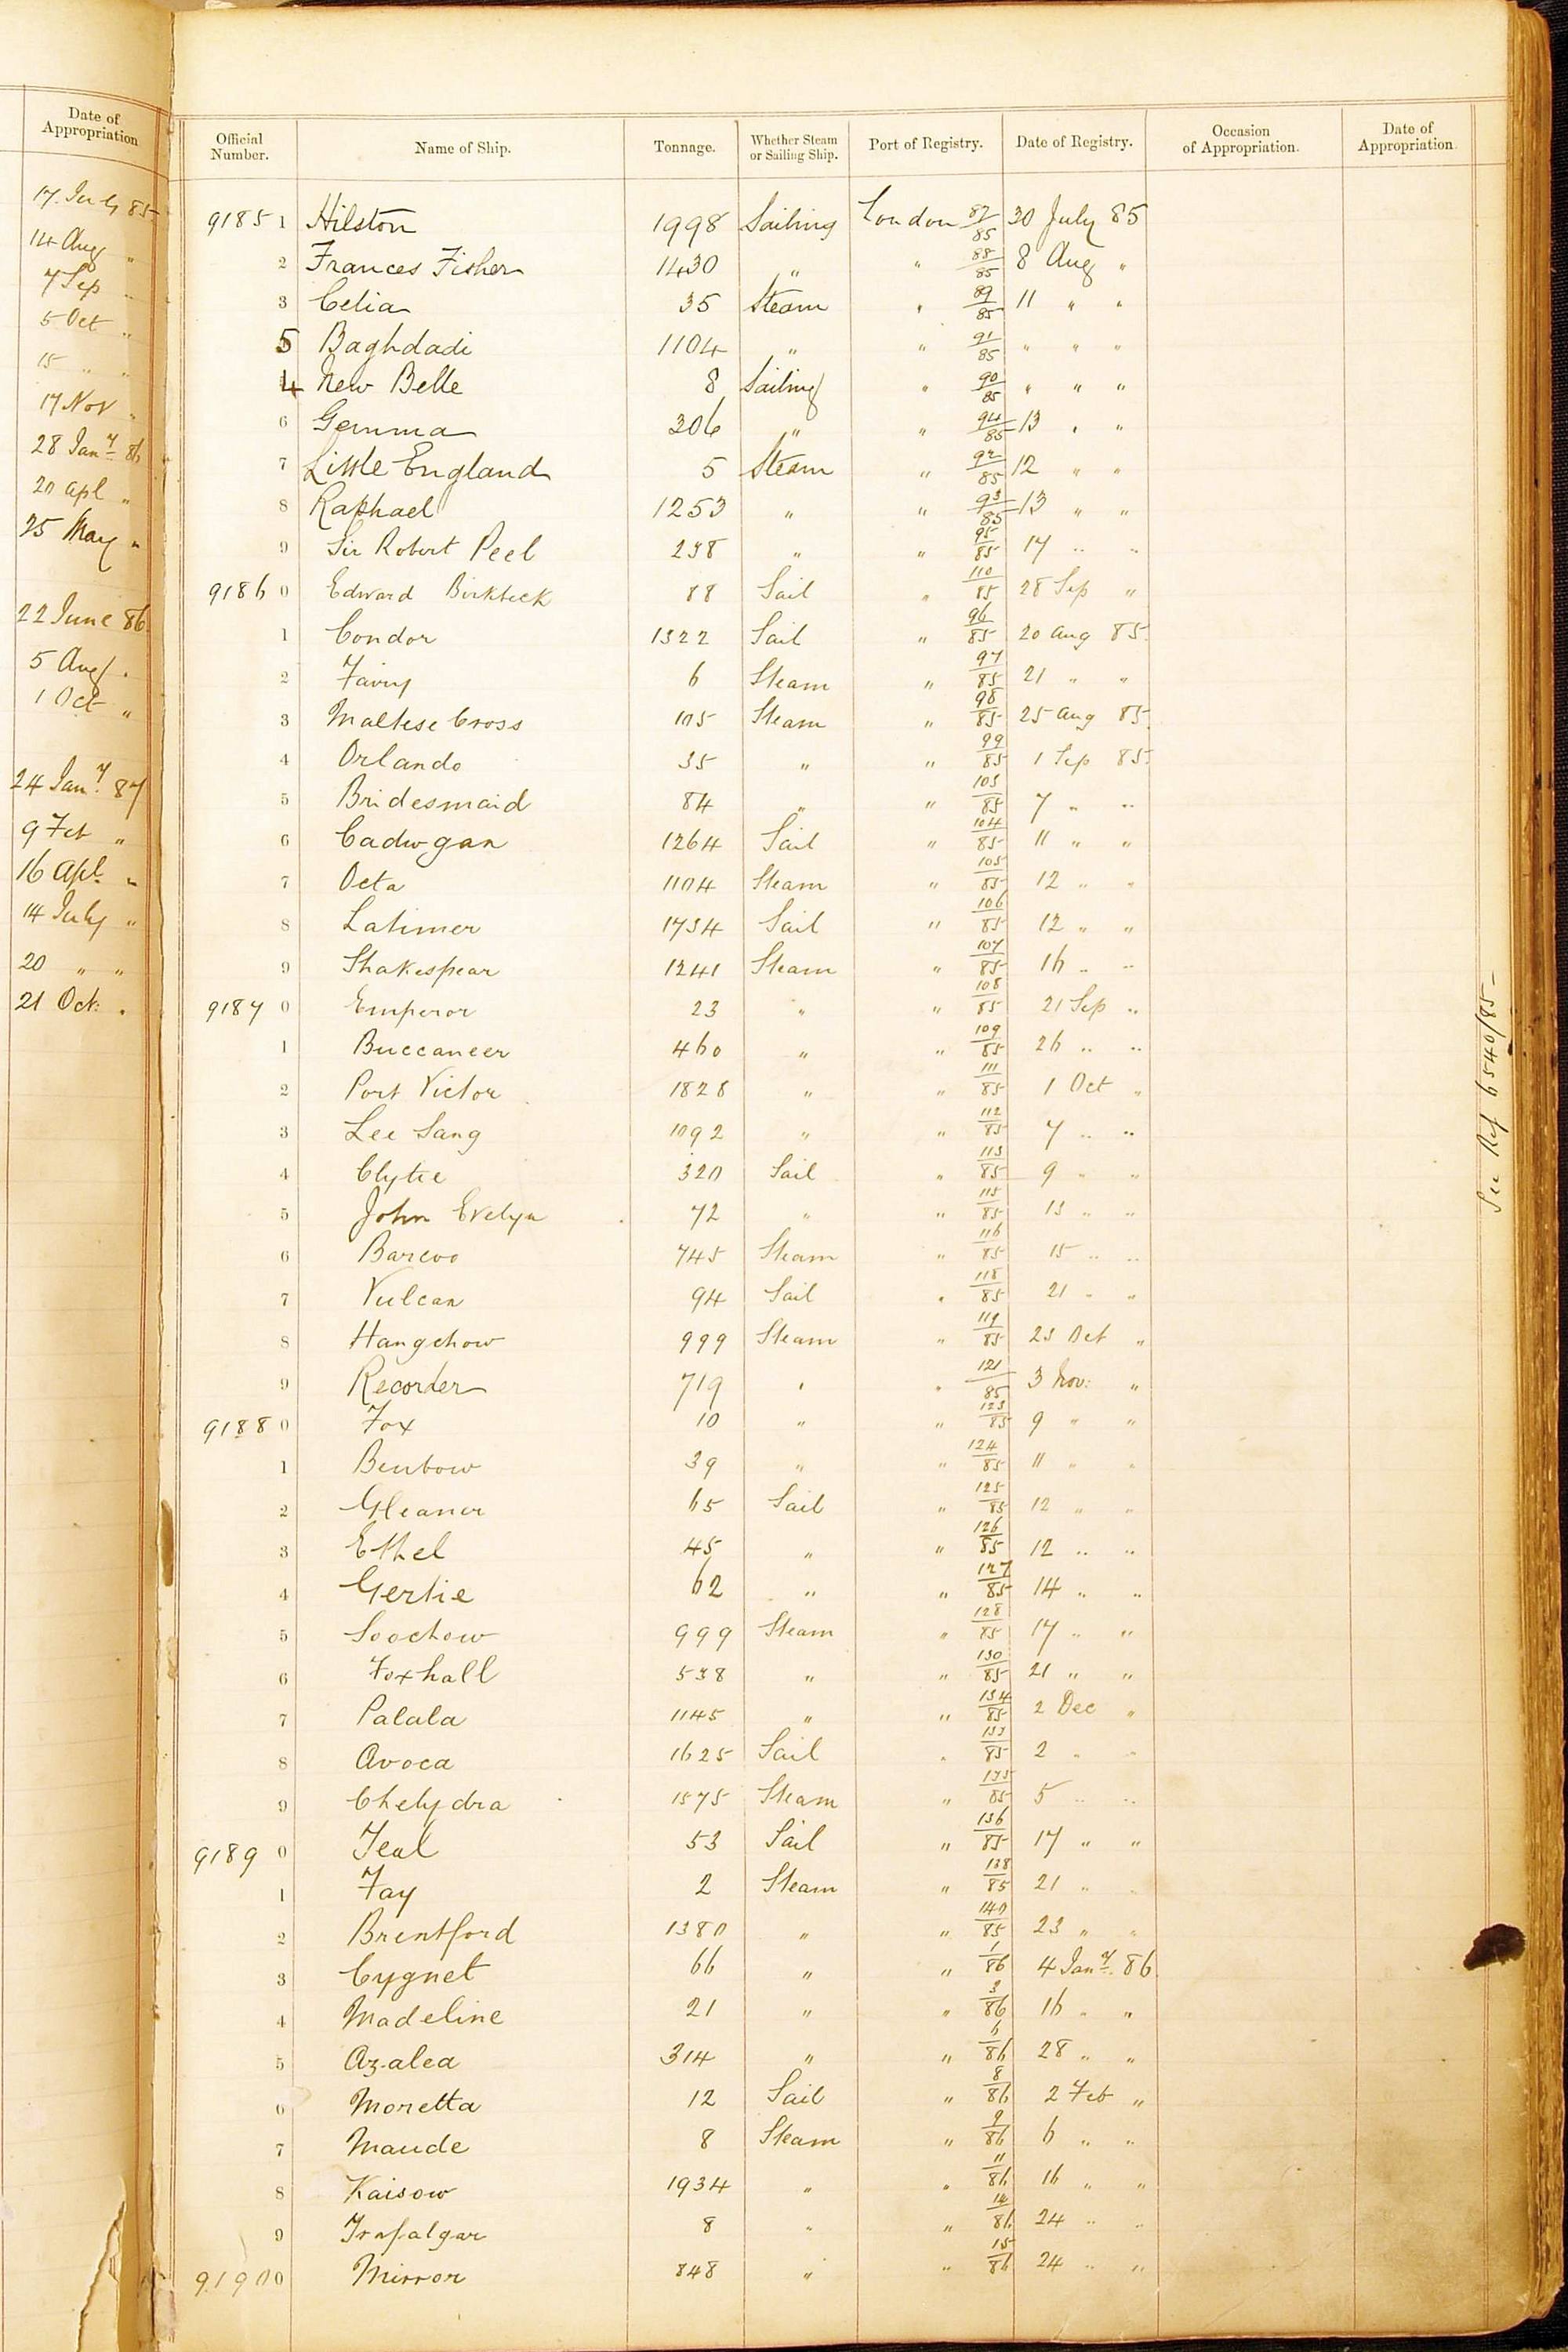 Date of
Appropriation
17 July 85
14 Aug „
7 Sep „
5 Oct „
15 „ „
17 Nov „
28 Jany 86
20 Apl „
25 May „
22 June 86
5 Aug „
1 Oct „
24 Jany 87
9 Feb „
16 Apl. „
14 July „
20 „ „
21 Oct: „
Official Number. Name of Ship. Tonnage. Whether Steam or Sailing Ship. Port of Registry. Date of Registry. Occasion of Appropriation. Date of Appropriation.
9185 1 Hilston 1998 Sailing London 87/85 30 July 85
2 Frances Fisher 1430 „ „ 88/85 8 Aug „
3 Celia 35 Steam „ 89/85 11 „ „
5 Baghdadi 1104 „ „ 91/85 „ „ „
4 New Belle 8 Sailing „ 90/85 „ „ „
6 Gemma 306 „ „ 94/85 13 „ „
7 Little England 5 Steam „ 92/85 12 „ „
8 Raphael 1253 „ „ 93/85 13 „ „
9 Sir Robert Peel 238 „ „ 95/85 17 „ „
9186 0 Edward Birkbeck 88 Sail „ 110/85 28 Sep „
1 Condor 1322 Sail „ 96/85 20 Aug 85
2 Fairy 6 Steam „ 97/85 21 „ „
3 Maltese Cross 105 Steam „ 98/85 25 Aug 85
4 Orlando 35 „ „ 99/85 1 Sep 85
5 Bridesmaid 84 „ „ 103/85 7 „ „
6 Cadwgan 1264 Sail „ 104/85 11 „ „
7 Octa 1104 Steam „ 105/85 12 „ „
8 Latimer 1734 Sail „ 106/85 12 „ „
9 Shakespear 1241 Steam „ 107/85 16 „ „
9187 0 Emperor 23 „ „ 108/85 21 Sep „
1 Buccaneer 460 „ „ 109/85 26 „ „
2 Port Victor 1828 „ „ 111/85 1 Oct „
3 Lee Sang 1092 „ „ 112/85 7 „ „
4 Clytie 320 Sail „ 113/85 9 „ „
5 John Evelyn 72 „ „ 115/85 13 „ „
6 Barcoo 745 Steam „ 116/85 15 „ „
7 Vulcan 94 Sail „ 118/85 21 „ „
8 Hangchow 999 Steam „ 119/85 23 Oct „
9 Recorder 719 „ „ 121/85 3 Nov: „
9188 0 Fox 10 „ „ 123/85 9 „ „
1 Benbow 39 „ „ 124/85 11 „ „
2 Gleaner 65 Sail „ 125/85 12 „ „
3 Ethel 45 „ „ 126/85 12 „ „
4 Gertie 62 „ „ 127/85 14 „ „
5 Soochow 999 Steam „ 128/85 17 „ „
6 Foxhall 538 „ „ 130/85 21 „ „
7 Palala 1145 „ „ 134/85 2 Dec „
8 Avoca 1625 Sail „ 133/85 2 „ „
9 Chelydra 1575 Steam „ 135/85 5 „ „
9189 0 Teal 53 Sail „ 136/85 17 „ „
1 Fay 2 Steam „ 138/85 21 „ „
2 Brentford 1380 „ „ 140/85 23 „ „
3 Cygnet 66 „ „ 1/86 4 Jany. 86
4 Madeline 21 „ „ 3/86 16 „ „
5 Azalea 314 „ „ 6/86 28 „ „
6 Moretta 12 Sail „ 8/86 2 Feb „
7 Maude 8 Steam „ 9/86 6 „ „
8 Kaisow 1934 „ „ 11/86 16 „ „
9 Trafalgar 8 „ „ 14/86 24 „ „
9190 0 Mirror 848 „ „ 15/86 24 „ „
See Ref 6540/85